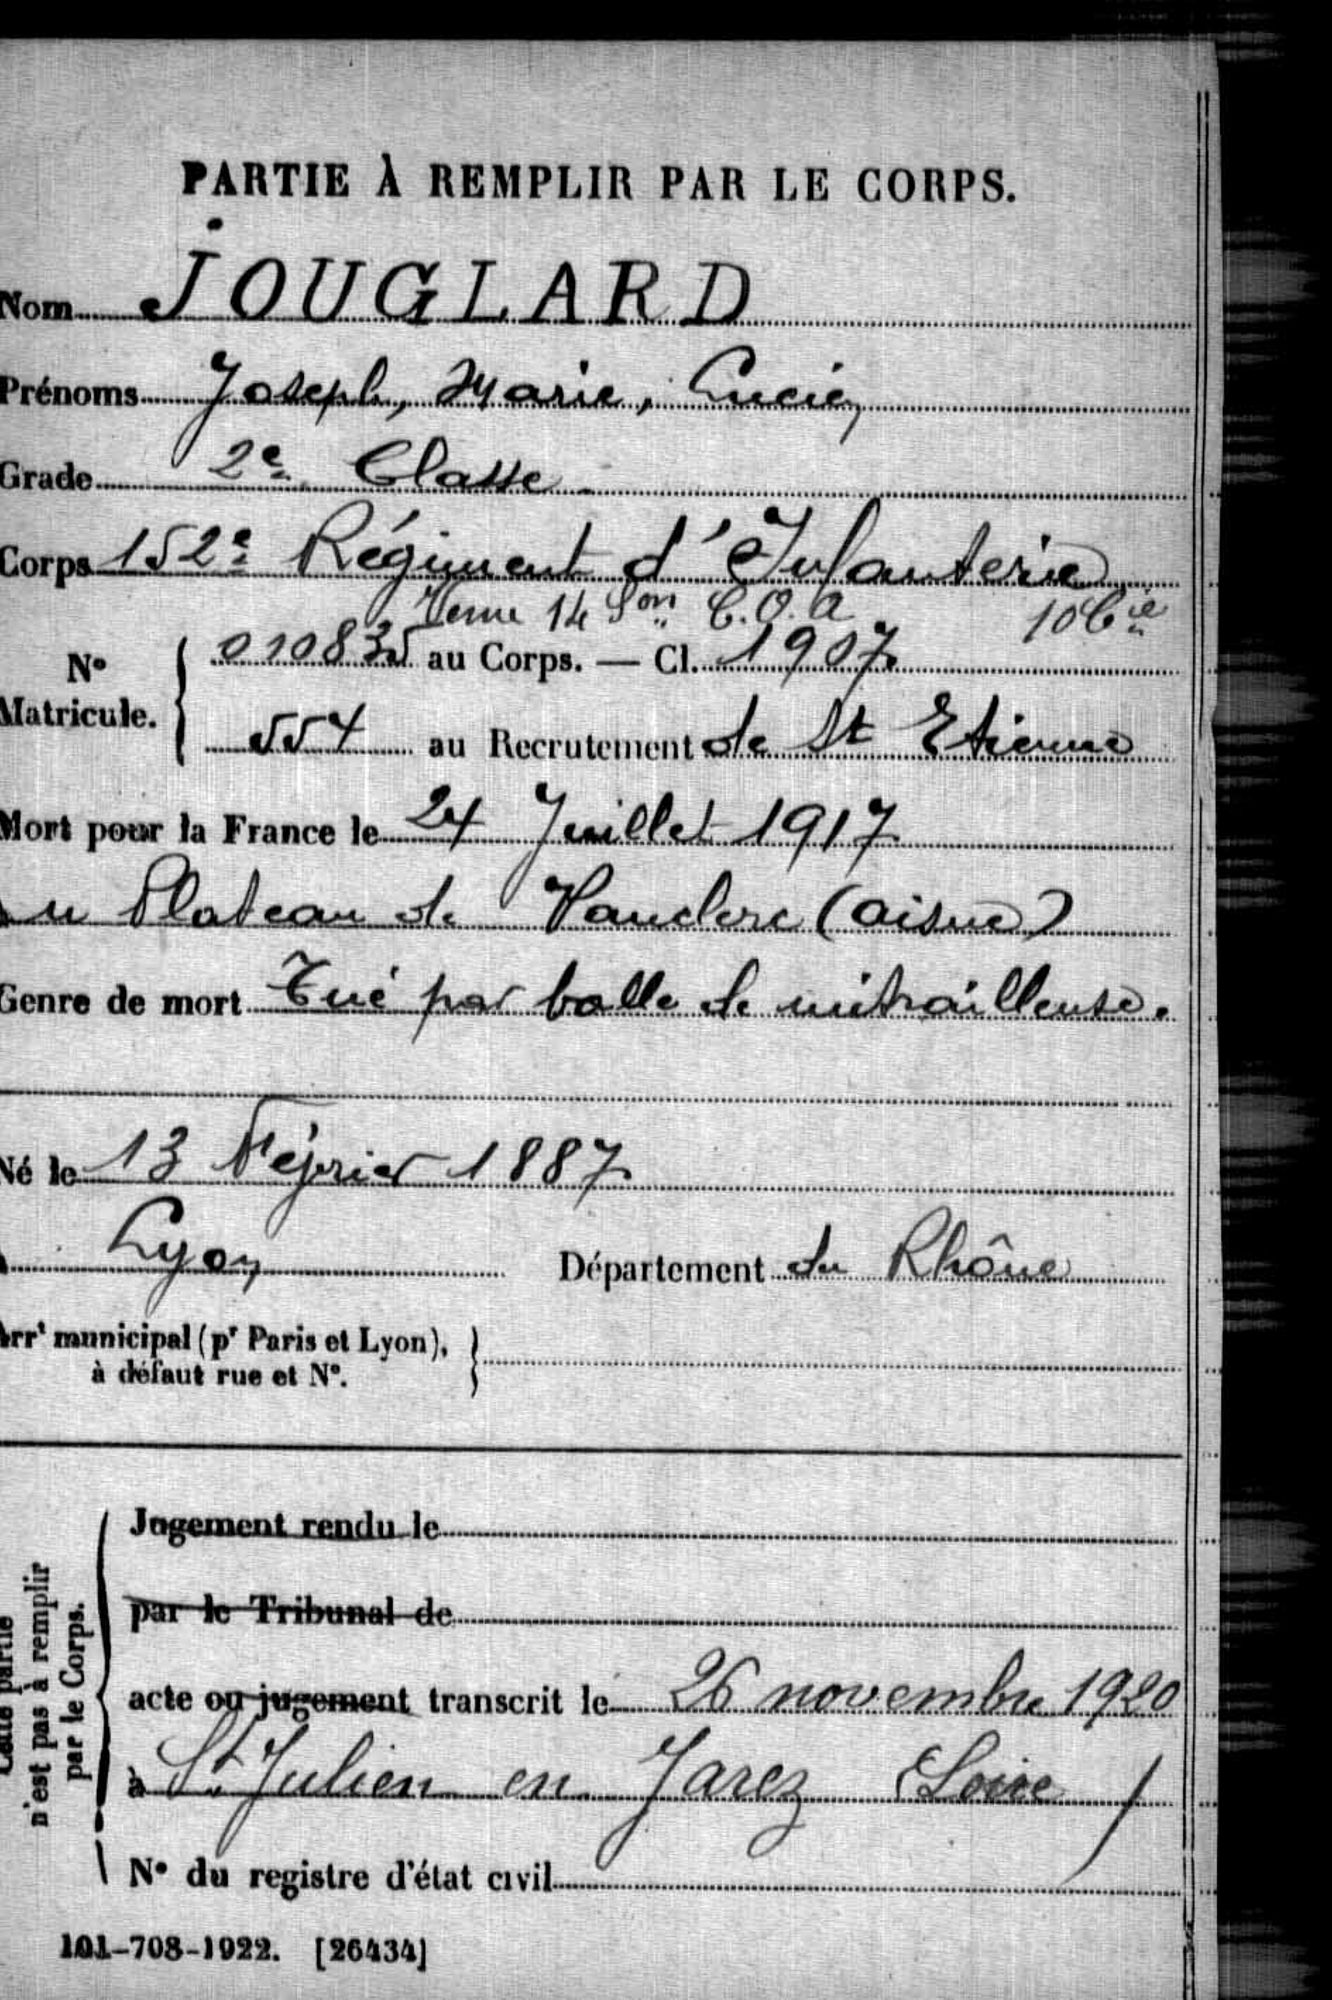 PARTIE À REMPLIR PAR LE CORPS.
Nom JOUGLARD
Prénoms Joseph, Marie, Lucien
Grade 2e Classe
Corps 152e Régiment d'Infanterie
14 Son C.O.A 10 Cie
N° Matricule. 010835 au Corps. — Cl. 1907
554 au Recrutement de St Etienne
Mort pour la France le 24 Juillet 1917
au Plateau de Vauclerc (Aisne)
Genre de mort Tué par balle de mitrailleuse.
Né le 13 Février 1887
Lyon Département du Rhône
Arrt municipal (pr Paris et Lyon), à défaut rue et N°.
Cette partie n'est pas à remplir par le Corps.
Jugement rendu le
par le Tribunal de
acte ou jugement transcrit le 26 novembre 1920
à St Julien en Jarez (Loire)
N° du registre d'état civil
101-708-1922. [26434]